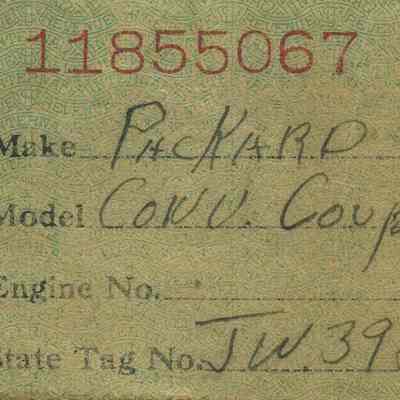 11855067
Make Packard
Model Conv. Coup
Engine No.
State Tag No. JW 39